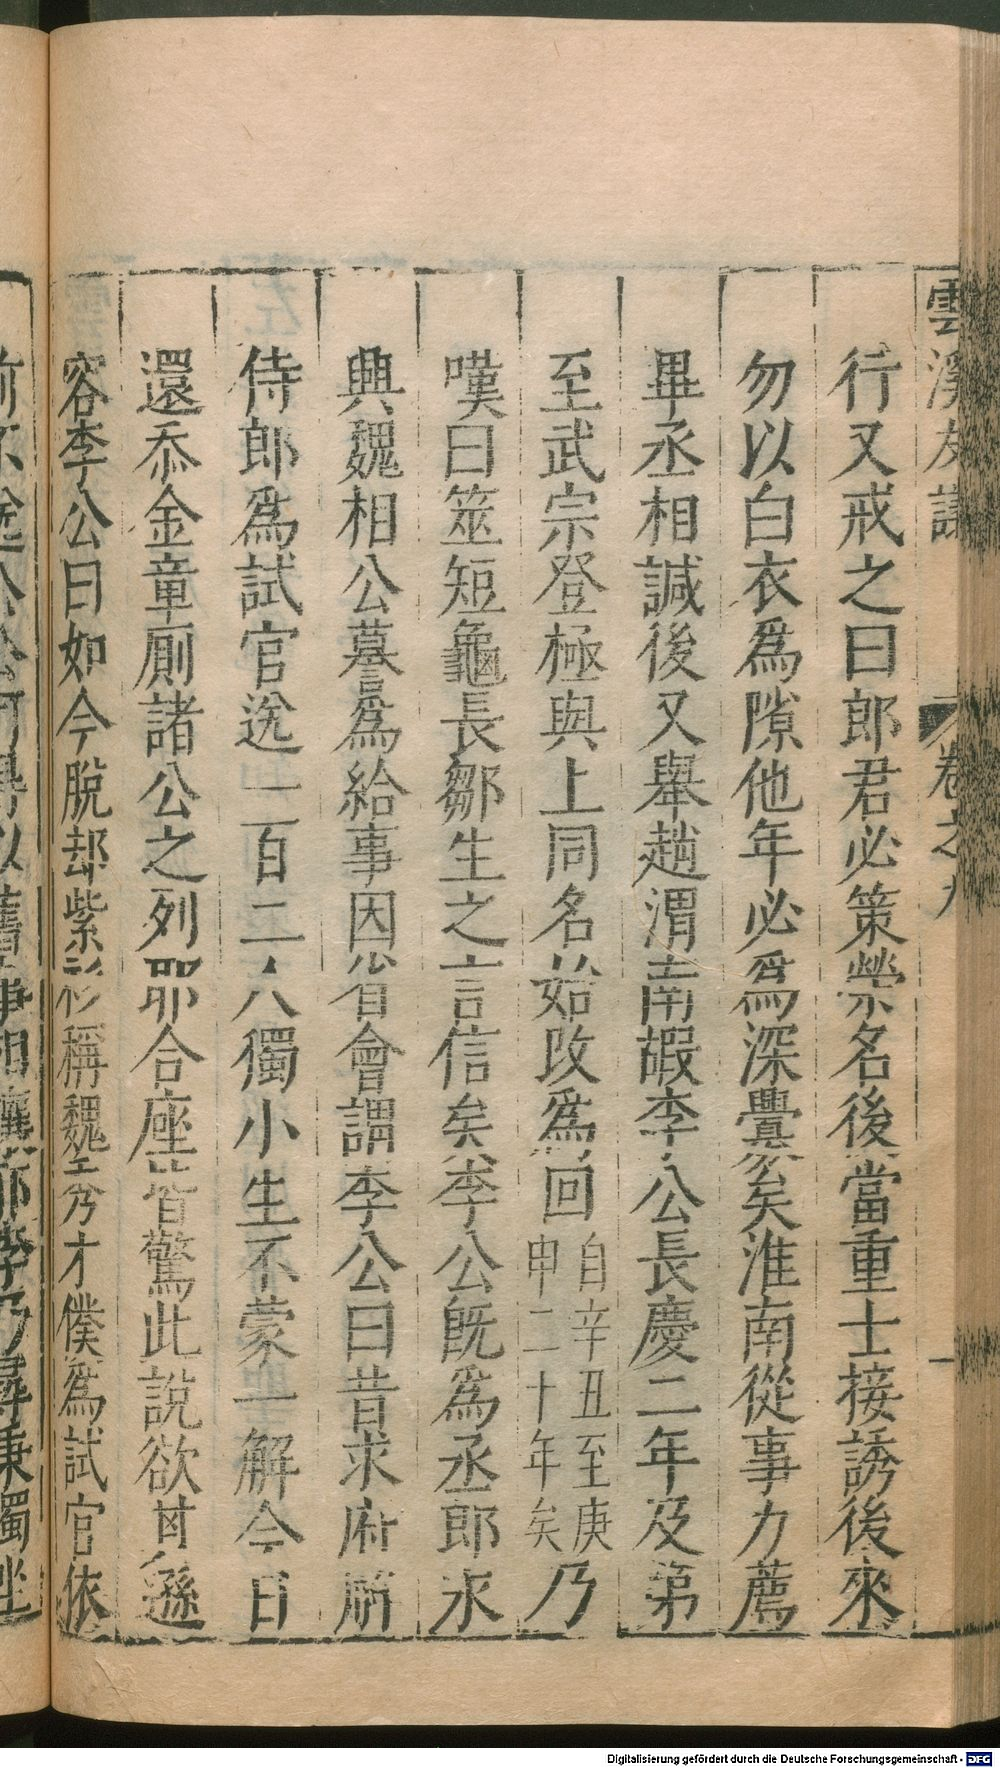 雲溪友議 卷之九 一
行又戒之曰郎君必策榮名後當重士接誘後來
勿以白衣爲隙他年必爲深舋矣淮南從事力薦
畢丞相諴後又舉趙渭南嘏李公長慶二年及第
至武宗登極與上同名始改爲回自辛丑至庚申二十年矣乃
嘆曰筮短龜長鄒生之言信矣李公既爲丞郎永
興魏相公謩爲給事因省會謂李公曰昔求府解
侍郎爲試官送一百二人獨小生不蒙一解今日
還忝金章廁諸公之列耶合座皆驚此說欲其遜
容李公曰如今脫却紫衫稱魏秀才僕爲試官依
Digitalisierung gefördert durch die Deutsche Forschungsgemeinschaft - DFG